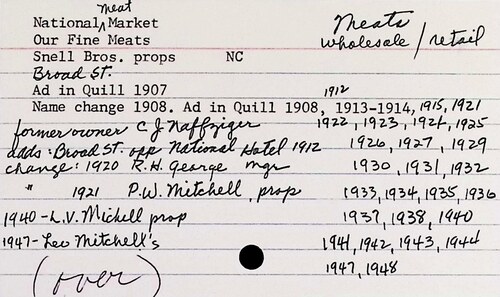 meat
National ^ Market
Meats
Our Fine Meats
wholesale / retail
Snell Bros. props NC
Broad St.
Ad in Quill 1907
1912
Name change 1908. Ad in Quill 1908, 1913-1914, 1915, 1921
former owner C J Naffziger 1922, 1923, 1924, 1925
adds: Broad St. opp National Hotel 1912 1926, 1927, 1929
change: 1920 R.H. George mgr 1930, 1931, 1932
" 1921 P.W. Mitchell, prop 1933, 1934, 1935, 1936
1940 - L.V. Michell prop 1937, 1938, 1940
1947 - Leo Mitchell's 1941, 1942, 1943, 1944
(over) 1947, 1948